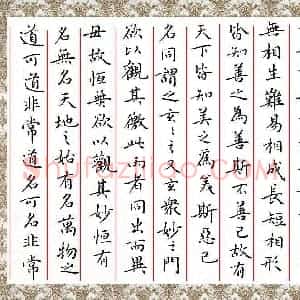 道可道非常道名可名非常
名無名天地之始有名萬物之
母故恒無欲以觀其妙恒有
欲以觀其徼此兩者同出而異
名同謂之玄之又玄衆妙之門
天下皆知美之為美斯惡已
皆知善之為善斯不善已故有
無相生難易相成長短相形